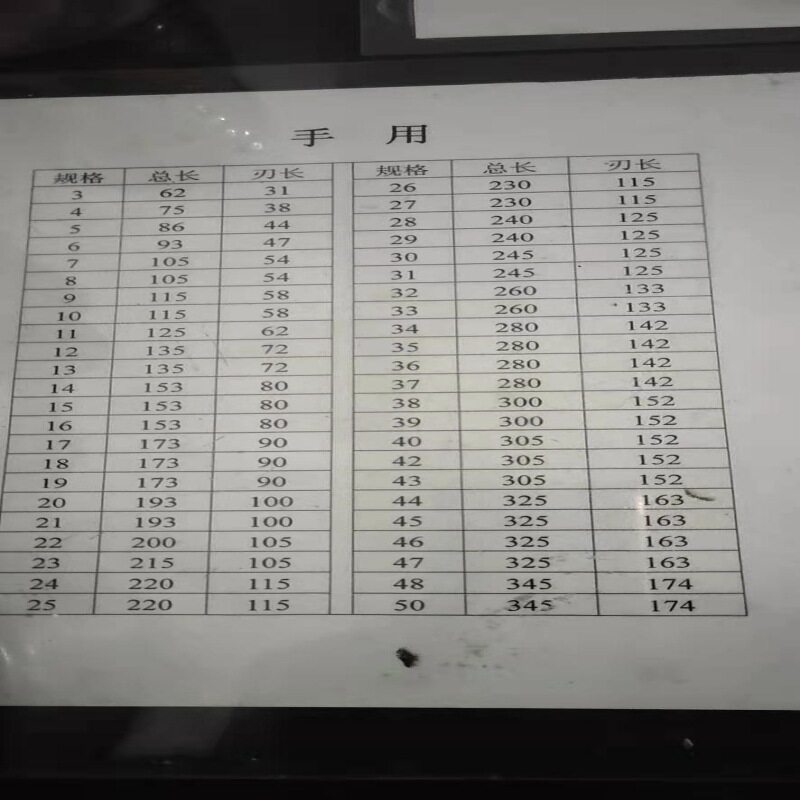 手 用
规格 总长 刃长 规格 总长 刃长
3 62 31 26 230 115
4 75 38 27 230 115
5 86 44 28 240 125
6 93 47 29 240 125
7 105 54 30 245 125
8 105 54 31 245 125
9 115 58 32 260 133
10 115 58 33 260 133
11 125 62 34 280 142
12 135 72 35 280 142
13 135 72 36 280 142
14 153 80 37 280 142
15 153 80 38 300 152
16 153 80 39 300 152
17 173 90 40 305 152
18 173 90 42 305 152
19 173 90 43 305 152
20 193 100 44 325 163
21 193 100 45 325 163
22 200 105 46 325 163
23 215 105 47 325 163
24 220 115 48 345 174
25 220 115 50 345 174